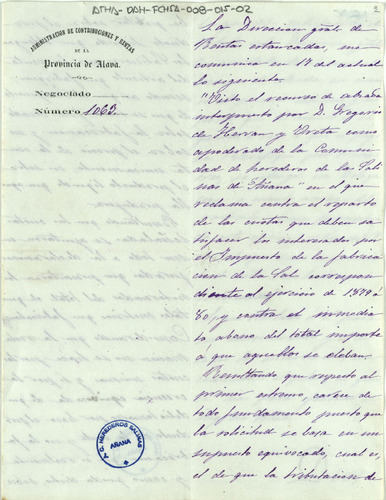 ATHA-DAH-FCHSA-008-015-02
2
ADMINISTRACION DE CONTRIBUCIONES Y RENTAS
DE LA
Provincia de Alava.
Negociado
Número 1063.
La Direccion gral. de
Rentas estancadas, me
comunica en 17 del actual
lo siguiente.
"Visto el recurso de alzada
interpuesto por D. Gregorio
de Herran y Ureta como
apoderado de la Comuni
dad de herederos de las Sali
nas de Añana" en el que
reclama contra el reparto
de las cuotas que deben sa
tisfacer los interesados por
el Impuesto de la fabrica
cion de la Sal correspon
diente al ejercicio de 1879 á
80, y contra el inmedia
to abono del total importe
a que aquellas se elevan.
Resultando que respecto al
primer extremo, carece de
todo fundamento puesto que
la solicitud se basa en un
supuesto equivocado, cual es,
el de que la tributacion de
HEREDEROS SALINAS
AÑANA